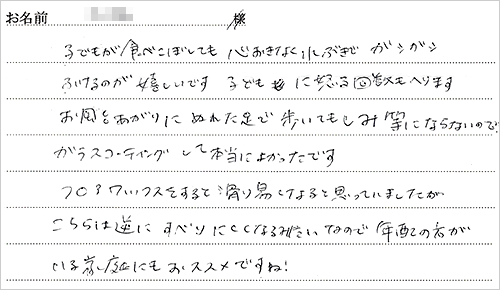 お名前 様
子どもが食べこぼしても 心おきなく水ぶきで ガシガシ
ふけるのが嬉しいです 子どもに怒る回数もへります
お風呂あがりに ぬれた足で歩いてもしみ等にならないので
ガラスコーティングして本当によかったです
フロアワックスをすると滑り易くなると思っていましたが
こちらは逆に すべりにくくなるみたいなので 年配の方が
いる家庭にもおススメですね!